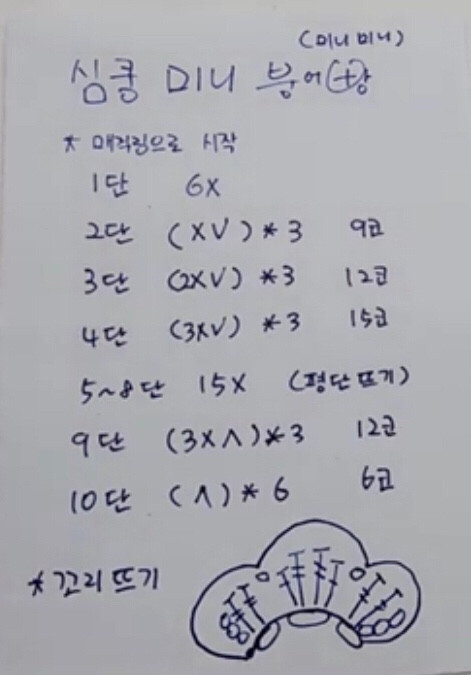 (미니 미니)
심쿵 미니 붕어빵
* 매직링으로 시작
1단 6X
2단 (XV)*3 9코
3단 (2XV)*3 12코
4단 (3XV)*3 15코
5~8단 15X (평단뜨기)
9단 (3X∧)*3 12코
10단 (∧)*6 6코
* 꼬리뜨기